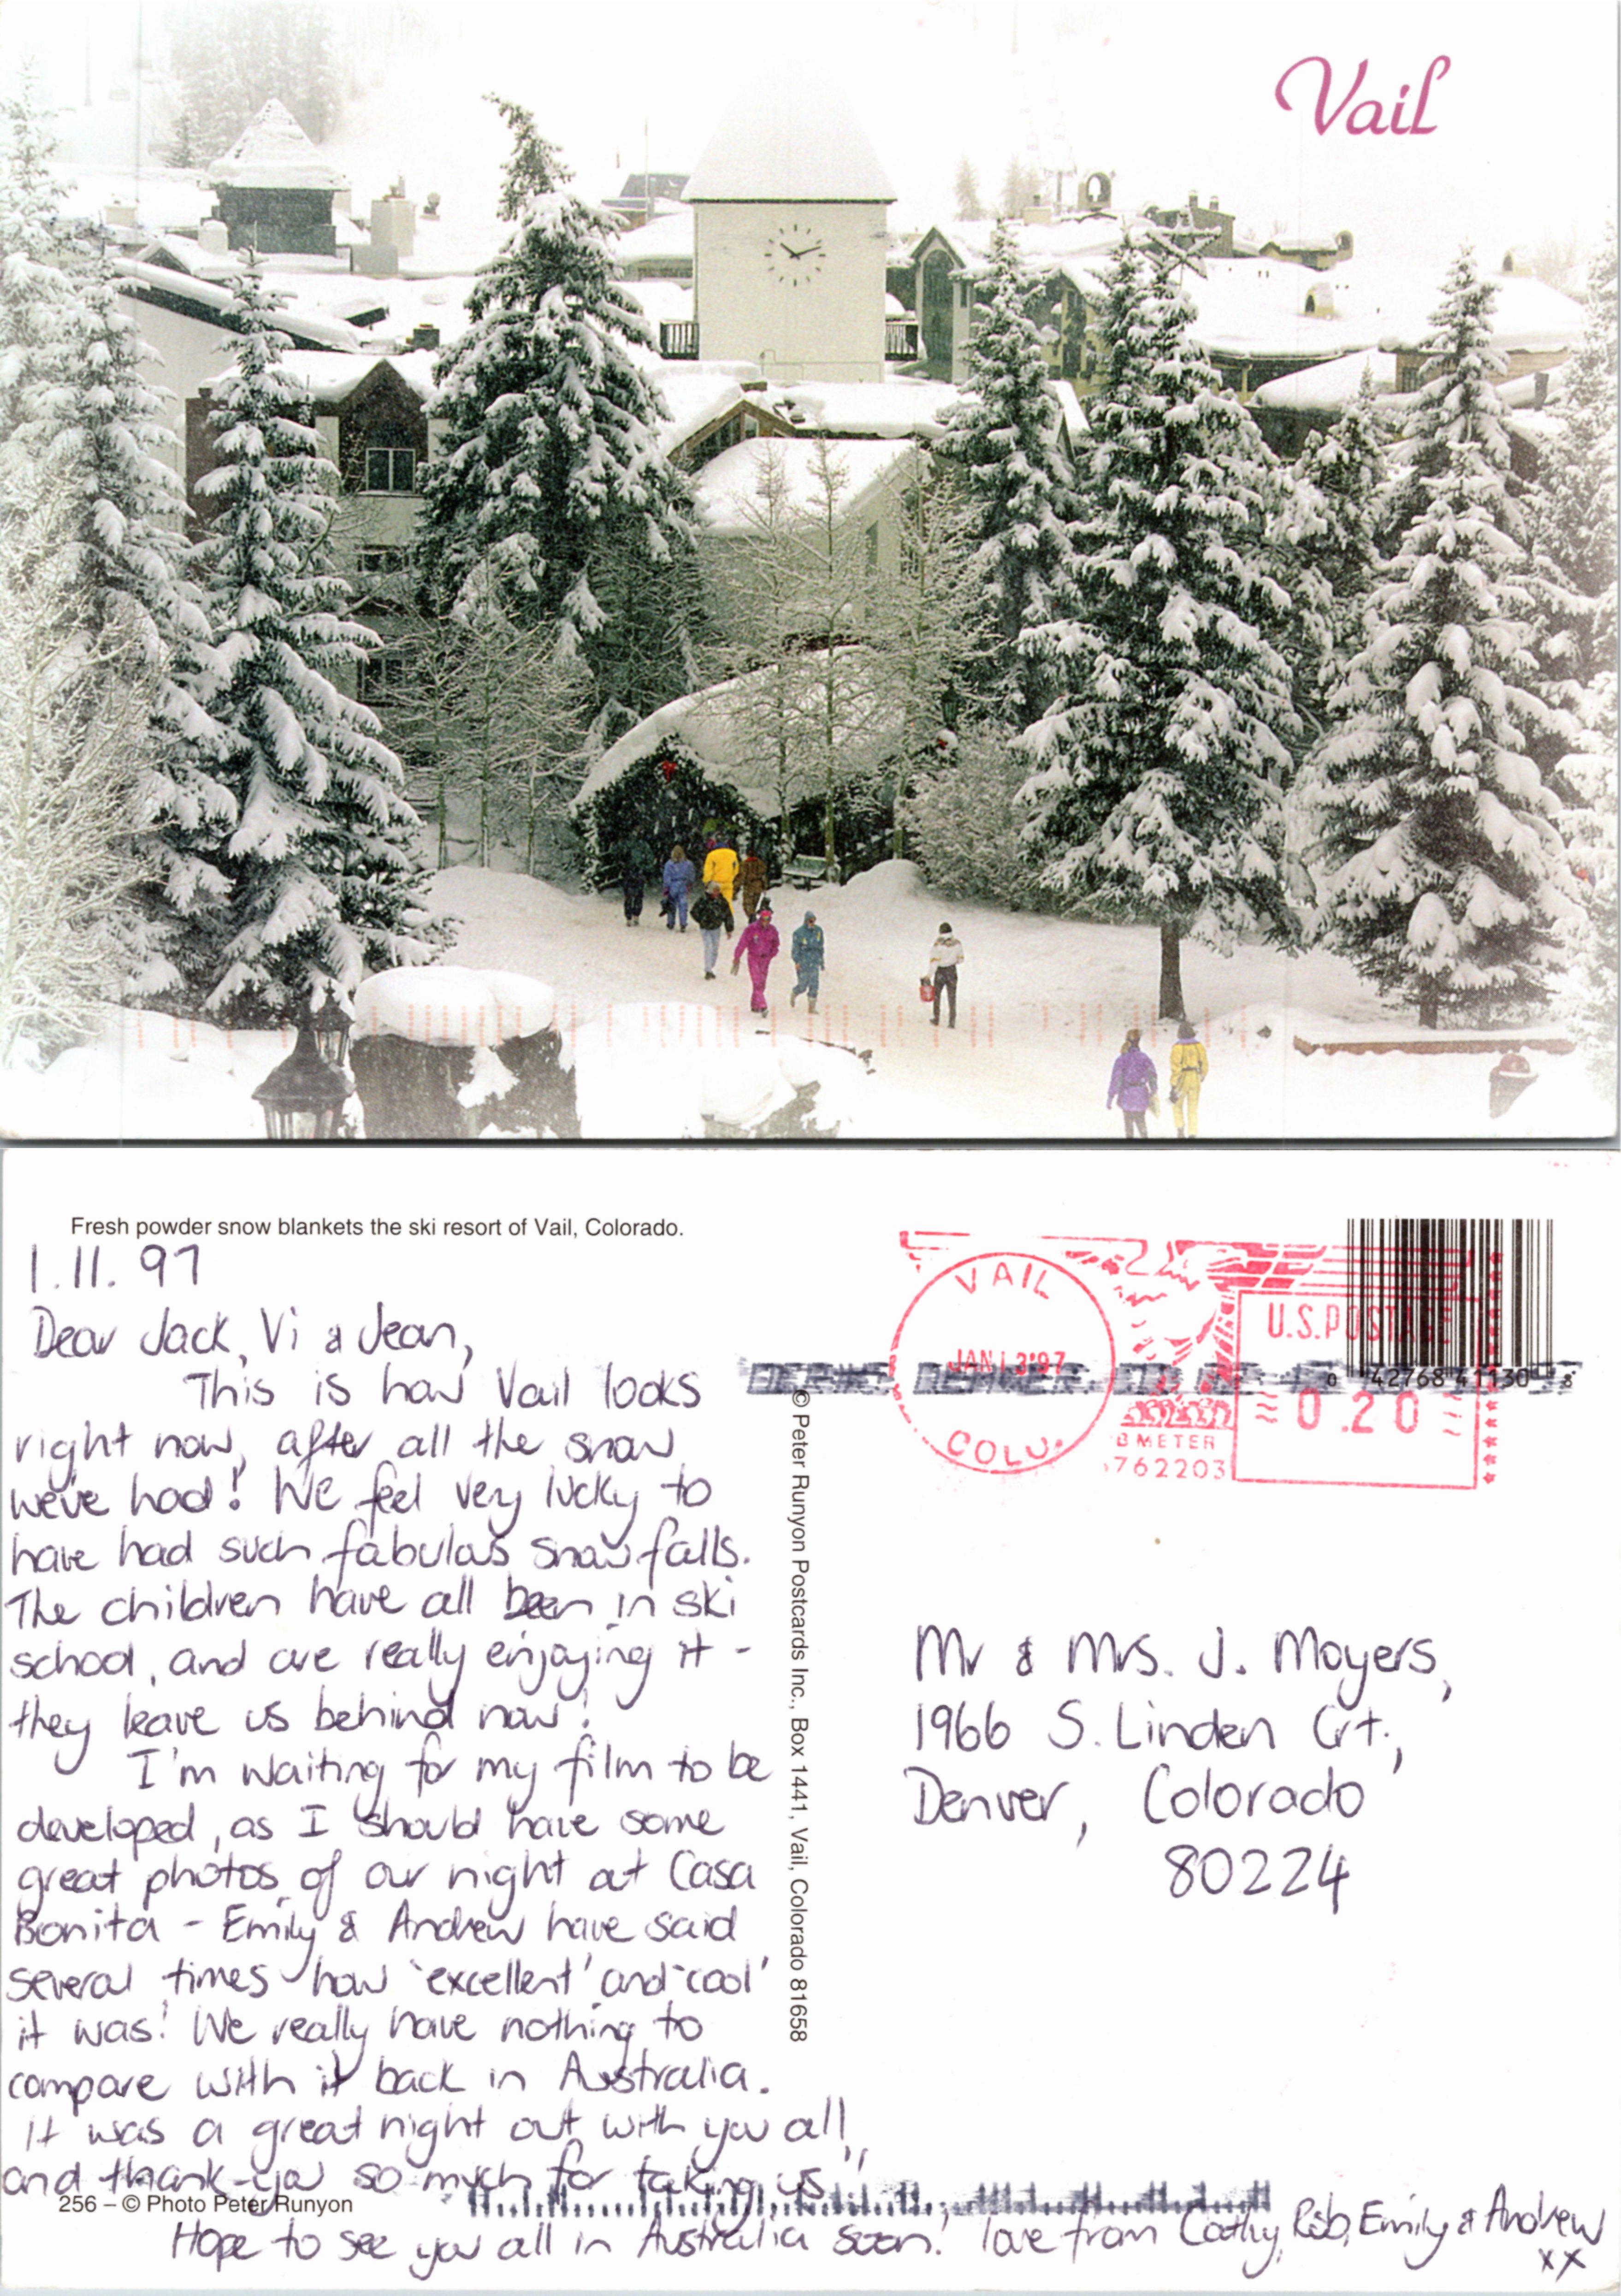 Vail
Fresh powder snow blankets the ski resort of Vail, Colorado.
1.11.97
Dear Jack, Vi & Jean,
This is how Vail looks
right now, after all the snow
we've had! We feel very lucky to
have had such fabulous snowfalls.
The children have all been in ski
school, and are really enjoying it -
they leave us behind now!
I'm waiting for my film to be
developed, as I should have some
great photos of our night at Casa
Bonita - Emily & Andrew have said
several times how 'excellent' and 'cool'
it was! We really have nothing to
compare with it back in Australia.
It was a great night out with you all,
and thank-you so much for taking us!!
256 – © Photo Peter Runyon
Hope to see you all in Australia soon! love from Cathy, Rob, Emily & Andrew
xx
© Peter Runyon Postcards Inc., Box 1441, Vail, Colorado 81658
VAIL
JAN 13'97
COLO.
U.S.POSTAGE
0.20
METER
762203
0 42768 41130 8
Mr & Mrs. J. Moyers,
1966 S. Linden Crt.,
Denver, Colorado
80224